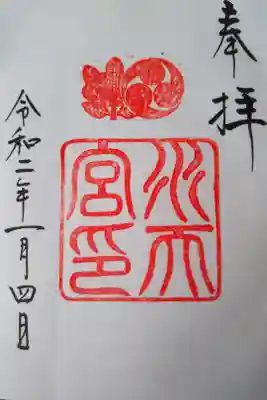 奉拝
水天
宮印
令和二年一月四日